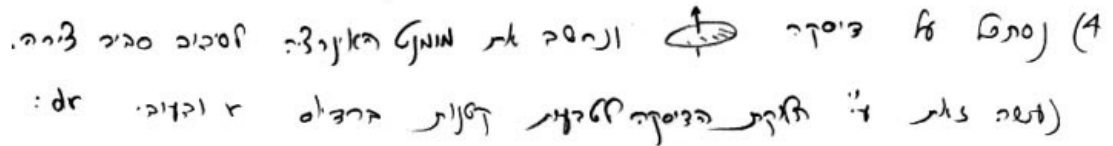 4) נסתכל על דיסקה ונחשב את מומנט האינרציה לסיבוב סביב צירה.
נעשה זאת ע"י חלוקת הדיסקה לטבעות קטנות ברדיוס r ובעובי dr: